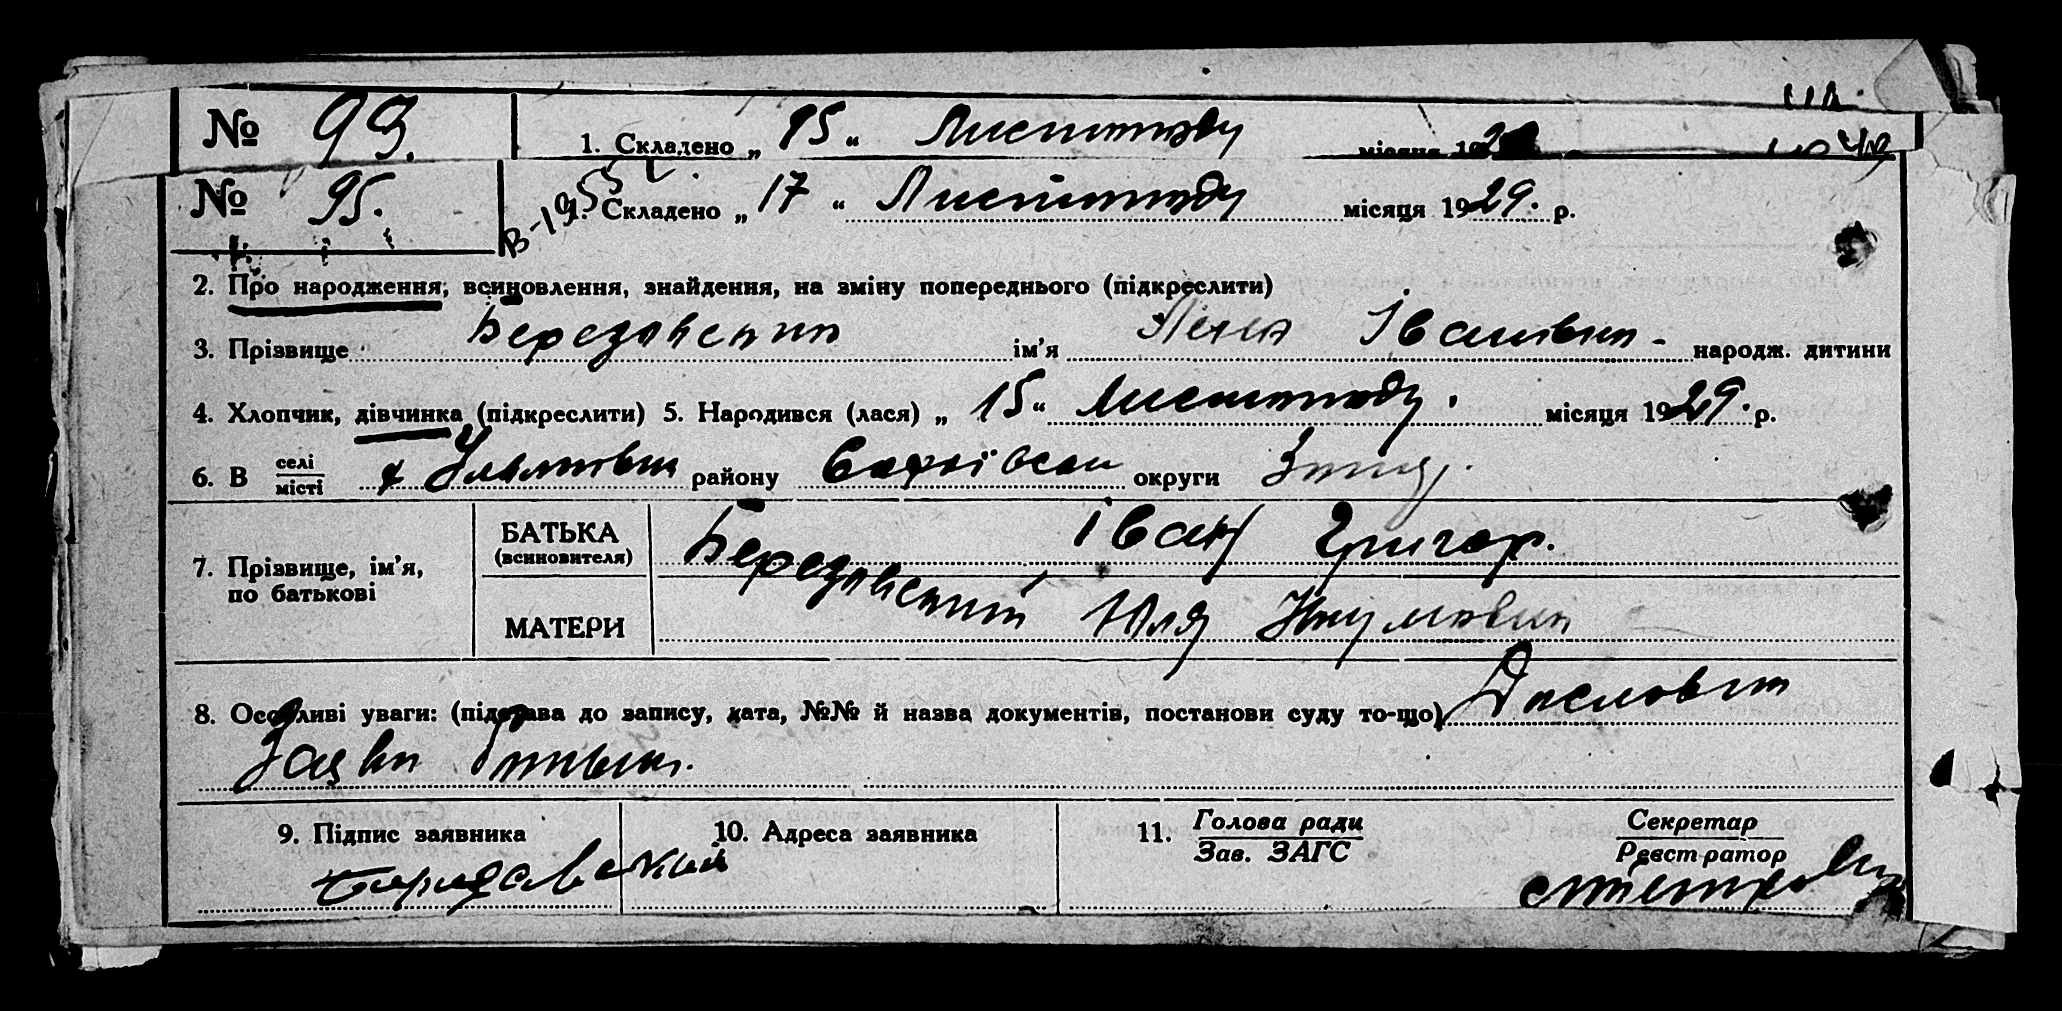 № 93. 1. Складено „ 15 “ Листопаду місяця 192
№ 95. 1. Складено „ 17 “ Листопаду місяця 1929. р.
В-1955
2. Про народження, всиновлення, знайдення, на зміну попереднього (підкреслити)
3. Прізвище Березовский ім’я Іванівни - народж. дитини
4. Хлопчик, дівчинка (підкреслити) 5. Народився (лася) „ 15 “ Листопаду. місяця 1929. р.
6. В селі / місті району округи
7. Прізвище, ім’я, по батькові БАТЬКА (всиновителя) Березовский Іван Григор.
МАТЕРИ Юля Наумовна
8. Особливі уваги: (підстава до запису, дата, №№ й назва документів, постанови суду то-що)
Заяви
9. Підпис заявника 10. Адреса заявника 11. Голова ради / Зав. ЗАГС Секретар / Реєстратор